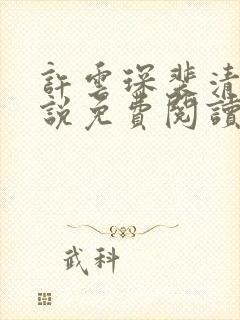 許雲琛裴清
說免費閱讀
武科